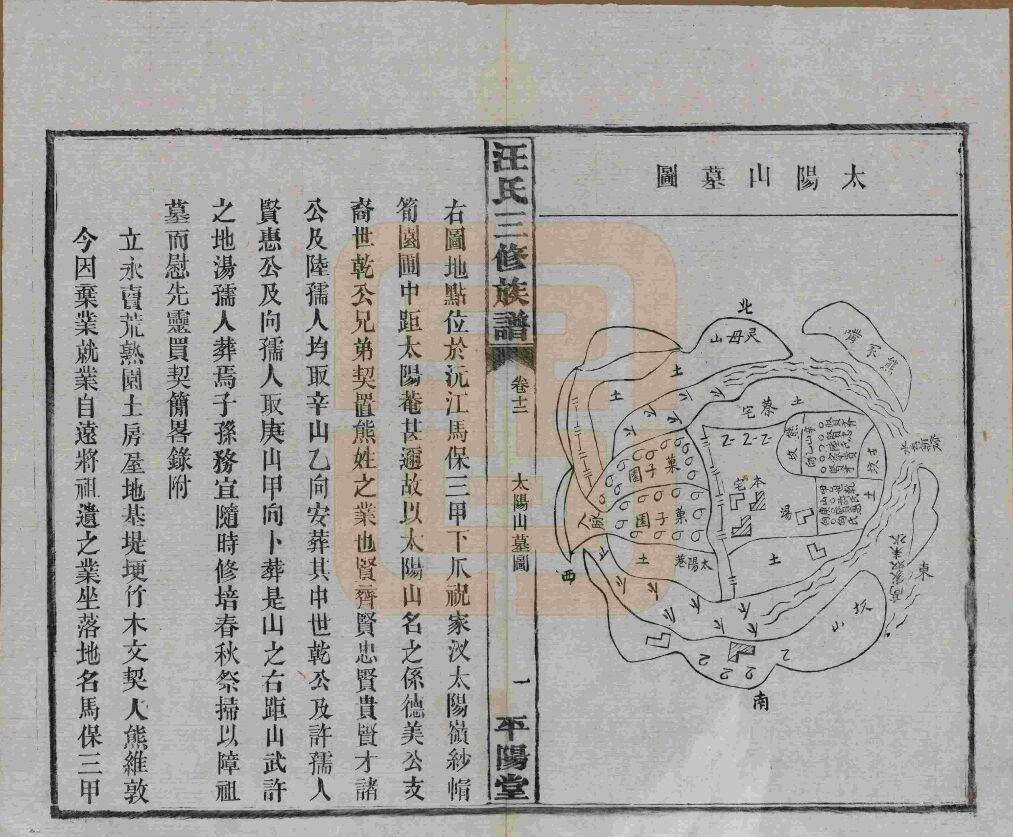 太陽山墓圖
北
灵母山
土
土
土
蔡宅
本宅
湯
土
土
土
古坟
東
坟山
南
西
太陽巷
栗子園
栗子園
汪氏三修族譜
卷十二
太陽山墓圖
一
平陽堂
右圖地點位於沅江馬保三甲下爪祝家汊太陽嶺紗帽
筍園圃中距太陽菴甚邇故以太陽山名之係德美公支
裔世乾公兄弟契置熊姓之業也賢齊賢忠賢貴賢才諸
公及陸孺人均取辛山乙向安葬其中世乾公及許孺人
賢惠公及向孺人取庚山甲向卜葬是山之右距山武許
之地湯孺人葬焉子孫務宜隨時修培春秋祭掃以障祖
墓而慰先靈買契簡畧錄附
立永賣荒熟園土房屋地基堤埂竹木文契人熊維敦
今因棄業就業自遠將祖遺之業坐落地名馬保三甲